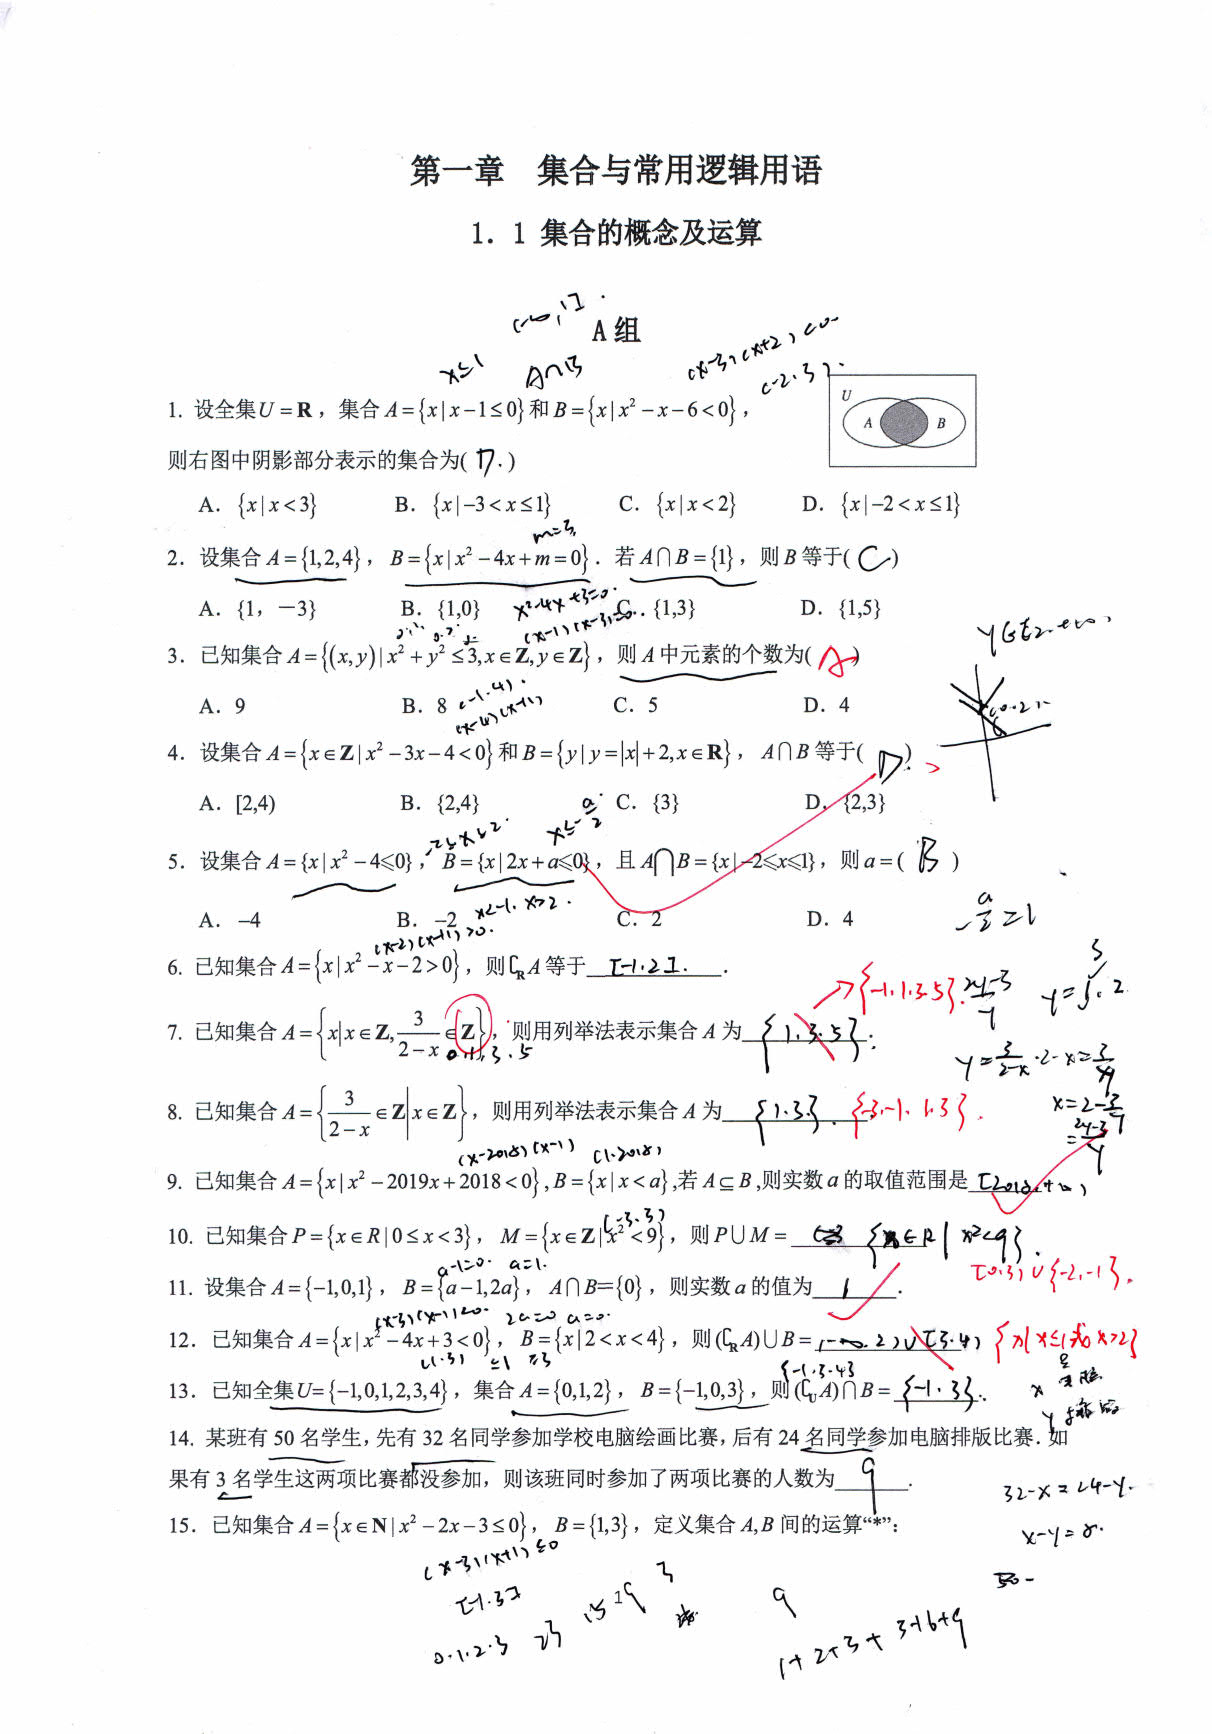 第一章 集合与常用逻辑用语
1.1 集合的概念及运算
(-∞,1].
A组
x≤1 A∩B (x-3)(x+2)<0
(-2.3).
1. 设全集U=R，集合A={x|x-1≤0}和B={x|x²-x-6<0}，
U A B
则右图中阴影部分表示的集合为( D. )
A. {x|x<3} B. {x|-3<x≤1} C. {x|x<2} D. {x|-2<x≤1}
m=3,
2. 设集合A={1,2,4}，B={x|x²-4x+m=0}．若A∩B={1}，则B等于( C )
A. {1，-3} B. {1,0} C. {1,3} D. {1,5}
x²-4x+3=0.
(x-1)(x-3)=0.
3. 已知集合A={(x,y)|x²+y²≤3,x∈Z,y∈Z}，则A中元素的个数为( A )
A. 9 B. 8 C. 5 D. 4
(-1.4).
(x-4)(x+1)
4. 设集合A={x∈Z|x²-3x-4<0}和B={y|y=|x|+2,x∈R}，A∩B等于( D. )
A. [2,4) B. {2,4} C. {3} D. {2,3}
-2≤x≤2. x≤-a/2
5. 设集合A={x|x²-4≤0}，B={x|2x+a≤0}，且A∩B={x|-2≤x≤1}，则a=( B )
A. -4 B. -2 C. 2 D. 4
x<-1. x>2. -a/2=1
(x-2)(x+1)>0.
6. 已知集合A={x|x²-x-2>0}，则∁RA等于 [-1.2]. .
{-1.1.3.5}. 2y-3/y
7. 已知集合A={x|x∈Z, 3/(2-x)∈Z}，则用列举法表示集合A为 {1.3.5} .
y=3/(2-x) . 2-x=3/y
8. 已知集合A={3/(2-x)∈Z|x∈Z}，则用列举法表示集合A为 {1.3}. {-3.-1.1.3}.
x=2-3/y
=2y-3/y
(x-2018)(x-1) (1.2018)
9. 已知集合A={x|x²-2019x+2018<0},B={x|x<a},若A⊆B,则实数a的取值范围是 [2018.+∞)
(-3.3)
10. 已知集合P={x∈R|0≤x<3}，M={x∈Z|x²<9}，则P∪M= {x∈R|x²<9}.
[0.3)∪{-2,-1}.
a-1=0. a=1.
11. 设集合A={-1,0,1}，B={a-1,2a}，A∩B={0}，则实数a的值为 1 .
(x-3)(x-1)<0. 2a=0 a=0.
12. 已知集合A={x|x²-4x+3<0}，B={x|2<x<4}，则(∁RA)∪B= (-∞.2)∪[3.4) {x|x≤1或x>2}
(1.3) ≤1 ≥3
{-1.3.4}
13. 已知全集U={-1,0,1,2,3,4}，集合A={0,1,2}，B={-1,0,3}，则(∁UA)∩B= {-1.3}.
14. 某班有50名学生，先有32名同学参加学校电脑绘画比赛，后有24名同学参加电脑排版比赛．如
果有3名学生这两项比赛都没参加，则该班同时参加了两项比赛的人数为 9 .
32-x=24-y.
15. 已知集合A={x∈N|x²-2x-3≤0}，B={1,3}，定义集合A,B间的运算“*”：
x-y=8.
(x-3)(x+1)≤0
50-
[-1.3]
9
0.1.2.3
1+2+3+3+6+9